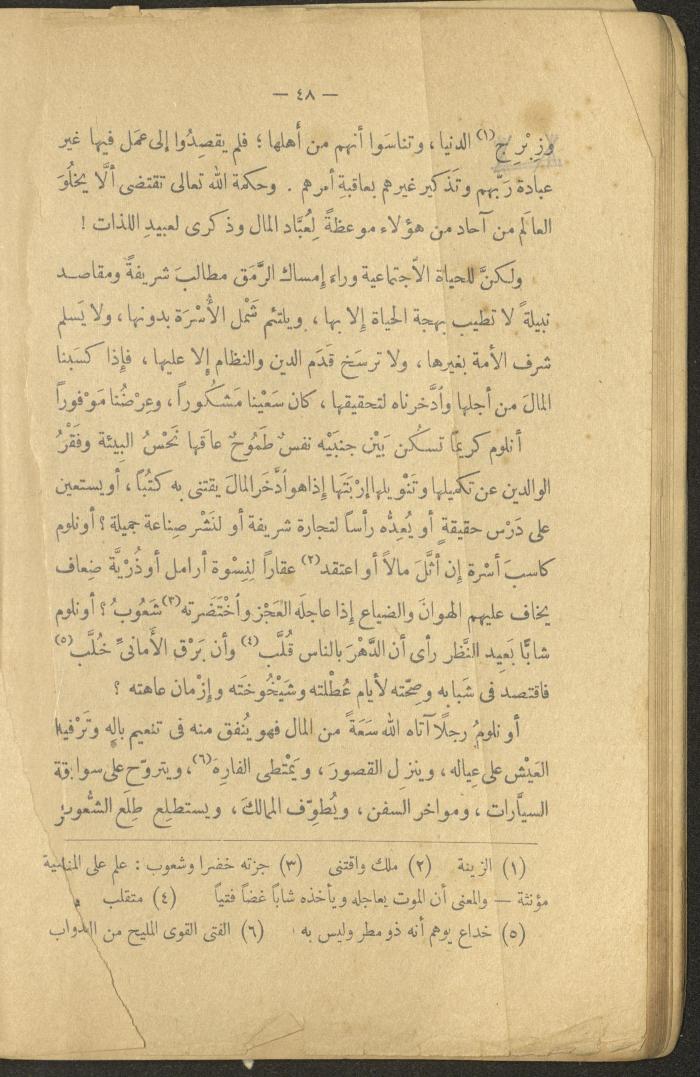 — ٤٨ —
وزِبْرِج(١) الدنيا، وتناسَوا أنهم من أهلها؛ فلم يقصِدُوا إلى عمَل فيها غير
عبادة رَبّهم وتَذكير غيرهم بعاقبة أمرهم . وحكمة الله تعالى تقتضى ألّا يخلُوَ
العالَم من آحاد من هؤلاء موعظةً لِعُبَّاد المال وذكرى لعبيد اللذات !
ولكنَّ للحياة الاجتماعية وراء إمساك الرَّمَق مطالبَ شريفةً ومقاصد
نبيلةً لا تطيب بهجة الحياة إلا بها، ويلتئم شَمْل الأُسْرَة بدونها، ولا يَسلم
شرف الأمة بغيرها، ولا ترسَخ قدَم الدين والنظام إلا عليها، فإذا كسَبنا
المالَ من أجلها وأدَّخرناه لتحقيقها، كان سَعْينا مَشكُوراً، وعِرْضُنا مَوْفوراً
أنلوم كريمًا تسكُن بَيْن جنبَيْه نفسٌ طَمُوحٌ عاقها نَحْسُ البِيئة وفَقْرُ
الوالدين عن تكميلها وتَنْويلها إرْبَتَها إذا هو أدَّخَر المالَ يقتنى به كتُبًا، أو يستعين
على دَرْس حقيقةٍ أو يُعِدُّه رأساً لتجارة شريفة أو لنَشْر صِناعة جميلة؟ أو نلوم
كاسبَ أسْرة إن أثَّلَ مالاً أو اعتقد(٢) عقاراً لنِسْوة أرامل أو ذُرّيَّة ضِعاف
يخاف عليهم الهوانَ والضياع إذا عاجلَه العَجْز وأخْتَضَرته(٣) شَعُوبُ؟ أو نلوم
شابًّا بَعِيد النَّظر رأى أن الدَّهْرَ بالناس قُلَّب(٤) وأن بَرْق الأَمانىِّ خُلَّب(٥)
فاقتصد فى شَبابه وصِحّته لأيام عُطْلته وشَيْخُوخَته وإزْمان عاهته ؟
أو نلومُ رجلًا آتاه الله سَعَةً من المال فهو يُنفق منه فى تنعيم بالِه وتَرْفيه
العَيْش على عِياله، وينزل القصورَ، ويَمْتطى الفارِهَ(٦)، ويتروّح على سوابقة
السيَّارات، ومواخر السفن، ويُطوِّف الممالكَ، ويستطلع طِلْع الشُّعوبِ
(١) الزينة (٢) ملك واقتنى (٣) جزته خضرا وشعوب : علم على المنية
مؤنثة — والمعنى أن الموت يعاجله ويأخذه شاباً غضاً فتياً (٤) متقلب
(٥) خداع يوهم أنه ذو مطر وليس به (٦) الفتى القوى المليح من الدواب